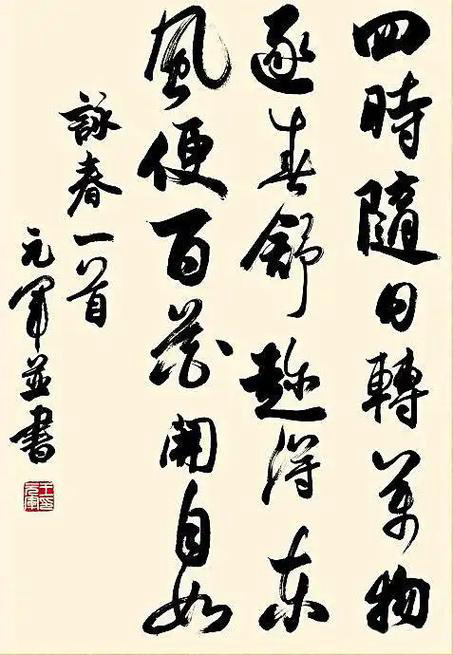 四時隨日轉萬物
逐春舒趁得東
風便百花開自如
詠春一首
元軍並書
王元軍印